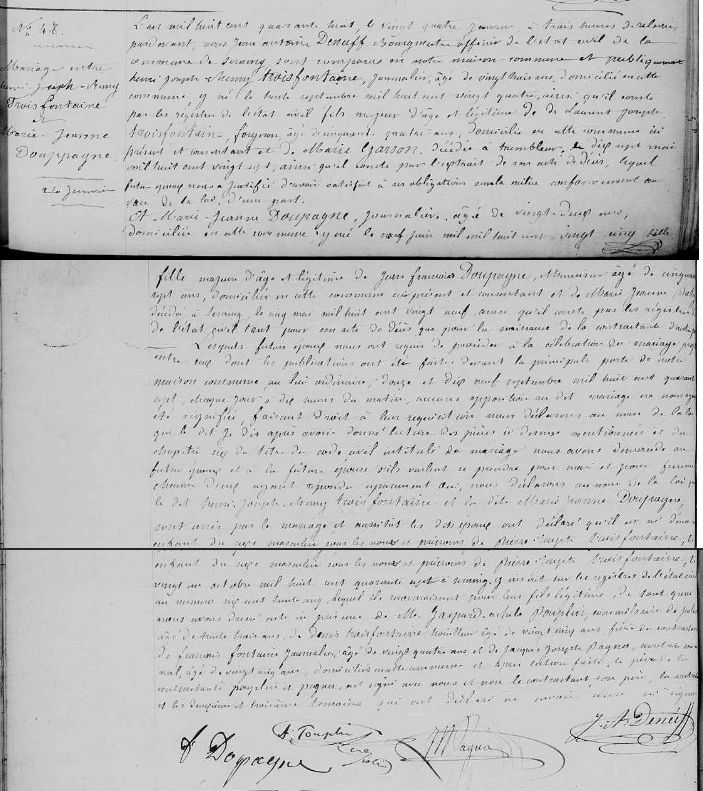 No 42.
Mariage entre
henri Joseph Remy
Trois fontaine
et
Marie-Jeanne
Doupagne
24 Janvier
L'an mil huit cent quarante huit, le vingt quatre Janvier, à trois heures de relevée,
pardevant, nous Jean Antoine Deneeff Bourgmestre officier de l'état civil de la
commune de Seraing, sont comparus en notre maison commune et publiquement
henri Joseph Remy troisfontaine, Journalier, âgé de vingt trois ans, domicilié en cette
commune, y né le trente septembre mil huit cent vingt quatre, ainsi qu'il conste
par les régistres de l'état civil fils majeur d'âge et légitime de Laurent Joseph
troisfontaine, forgeron, âgé cinquante quatre ans, domicilié en cette commune ici
présent et consentant et de Marie Garson, décédée à trembleur, le dix sept mai
mil huit cent vingt sept, ainsi qu'il conste par l'extrait de son acte de décès, lequel
futur époux nous a justifié d'avoir satisfait à ses obligations sur la milice conformément au
vœu de la loi, d'une part.
Et Marie-Jeanne Doupagne, Journalière, âgée de vingt-deux ans,
domiciliée en cette commune y née le neuf Juin mil huit cent vingt cinq fille
fille majeure d'âge et légitime de Jean françois Doupagne, âgé de cinquante
sept ans, domicilié en cette commune ici présent et consentant et de Marie Jeanne
décédée à Seraing, le cinq mai mil huit cent vingt neuf ainsi qu'il conste par les registres
de l'état civil tant pour son acte de décès que pour la naissance de la contractante d'autre
Lesquels futurs époux nous ont requis de procéder à la célébration du mariage
entre eux dont les publications ont été faites devant la principale porte de notre
maison commune au lieu ordinaire, douze et dix neuf septembre mil huit cent quarante
sept, chaque jour à dix heures du matin, aucune opposition au dit mariage ne nous ayant
été signifiée, faisant droit à leur réquisition nous déclarons au nom de la loi
que le dit Je dis après avoir donné lecture des pièces ci dessus mentionnées et du
chapitre six du titre du code civil intitulé du mariage nous avons demandé au
futur époux et à la future épouse s'ils veulent se prendre pour mari et pour femme
chacun d'eux ayant répondu séparément oui, nous déclarons au nom de la loi que
le dit henri Joseph Remy troisfontaine et la dite Marie Jeanne Doupagne,
sont unis par le mariage et aussitôt les dits époux ont déclaré qu'il est né d'eux
enfant du sexe masculin sous les noms et prénoms de pierre Joseph troisfontaine, le
enfant du sexe masculin sous les noms et prénoms de pierre Joseph troisfontaine, le
vingt un octobre mil huit cent quarante sept à Seraing, y inscrit sur les registres de l'état civil
au numéro six cent trente cinq, lequel ils reconnaissent pour leur fils légitime, de tout quoi
nous avons dressé acte en présence de Mr. Gaspard-achile Pouplin, commissaire de police
âgé de trente trois ans, de denis troisfontaine houilleur âgé de vingt cinq ans, frère du contractant
de françois fontaine Journalier, âgé de vingt quatre ans et de Jacques Joseph Pagna,
âgé de vingt cinq ans, domiciliés en cette commune et après lecture faite, le père de la
contractante pouplin et pagna, ont signé avec nous et non le contractant, son père, la
et les deuxième et troisième témoins qui ont déclaré ne savoir écrire ni signer
D Dopagne
A. Pouplin
Pagna
J. A. Deneeff